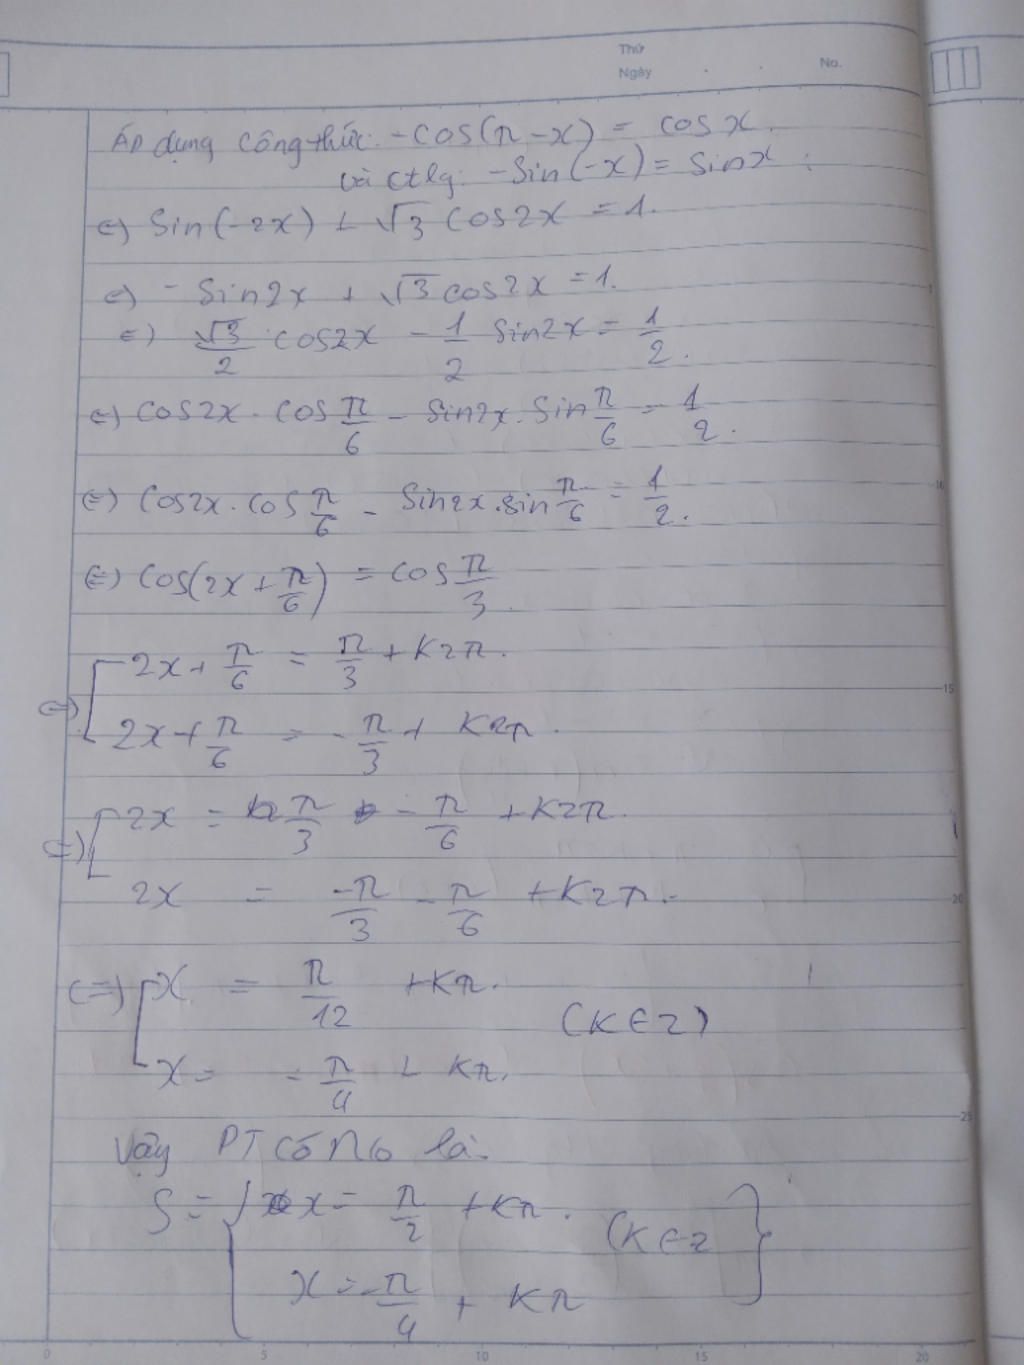 Thứ
Ngày . . No.
Áp dụng công thức: -cos(π - x) = cos x.
và ctlg: -sin(-x) = sin x :
<=> sin(-2x) + √3 cos2x = 1.
<=> - sin2x + √3 cos2x = 1.
<=> √3/2 . cos2x - 1/2 sin2x = 1/2.
<=> cos2x . cos π/6 - sin2x . sin π/6 = 1/2.
<=> cos2x . cos π/6 - sin2x . sin π/6 = 1/2.
<=> cos(2x + π/6) = cos π/3.
<=> [ 2x + π/6 = π/3 + k2π.
2x + π/6 = - π/3 + k2π.
<=> [ 2x = π/3 - π/6 + k2π.
2x = -π/3 - π/6 + k2π.
<=> [ x = π/12 + kπ.
(k ∈ z)
x = - π/4 + kπ.
Vậy PT có No là.
S = { x = π/2 + kπ. (k ∈ z }
x = -π/4 + kπ
15
20
25
0 5 10 15 20